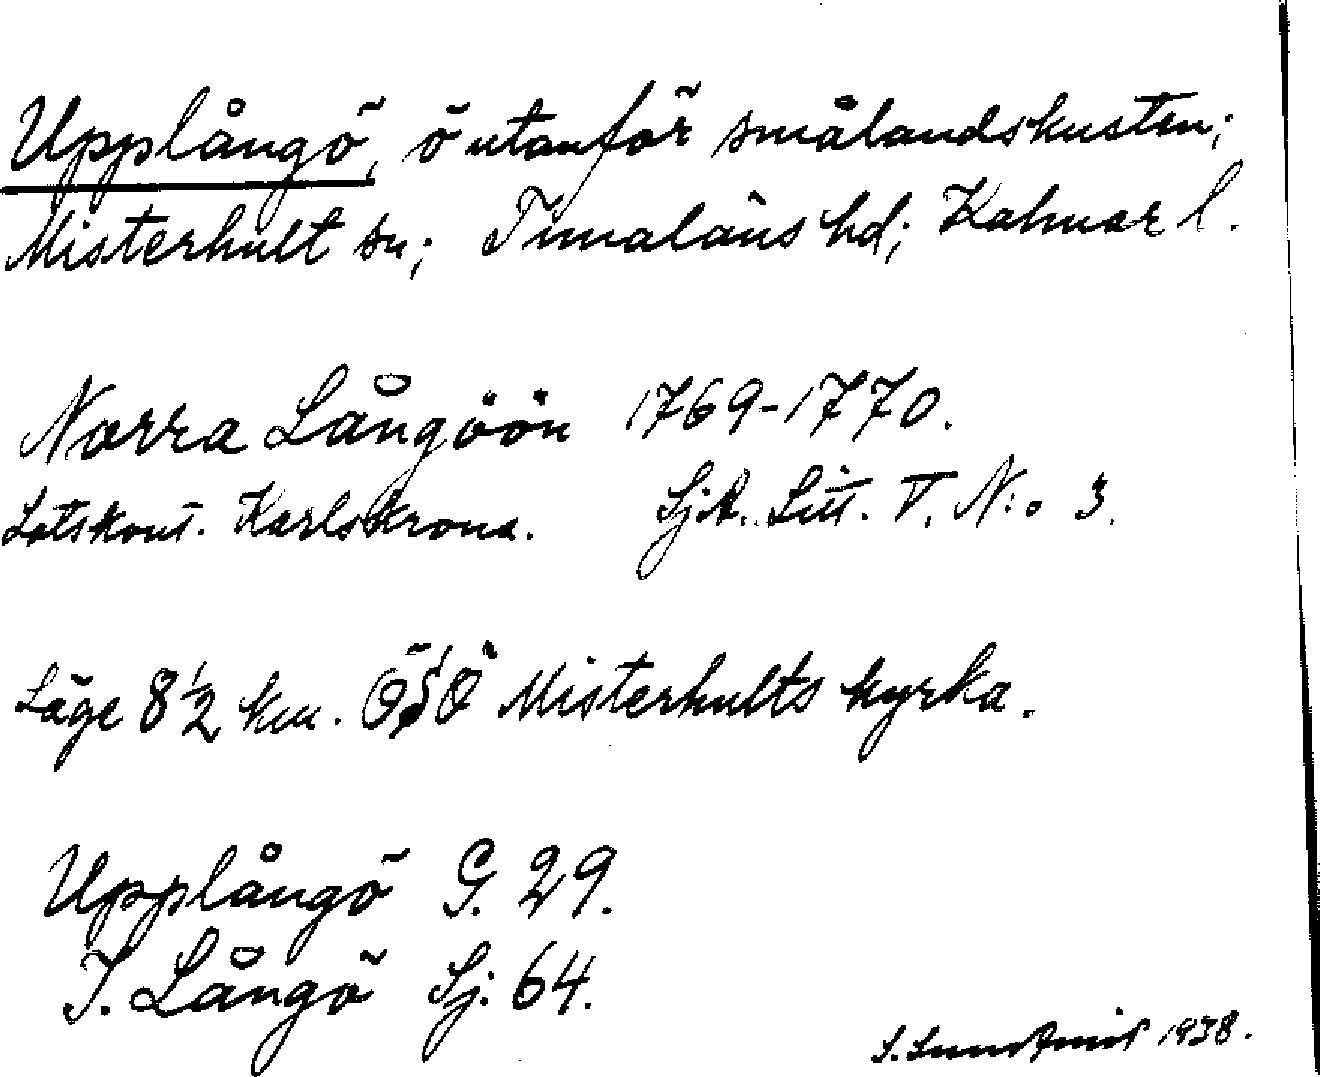 Upplångö, ö utanför smålandskusten;
Misterhult sn; Tunaläns hd; Kalmar l.
Norra Långöön 1769-1770.
Lotskont. Karlskrona. SjA. Litt. V. N:o 3.
Läge 8 1/2 km. OSO Misterhults kyrka.
Upplångö G. 29.
I. Långö Sj. 64.
S. 1938.